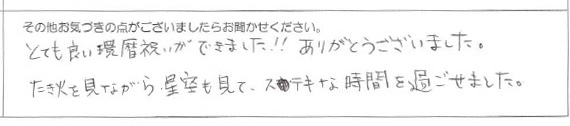 その他お気づきの点がございましたらお聞かせください。
とても良い還暦祝いができました!! ありがとうございました。
たき火を見ながら星空も見て、ステキな時間を過ごせました。